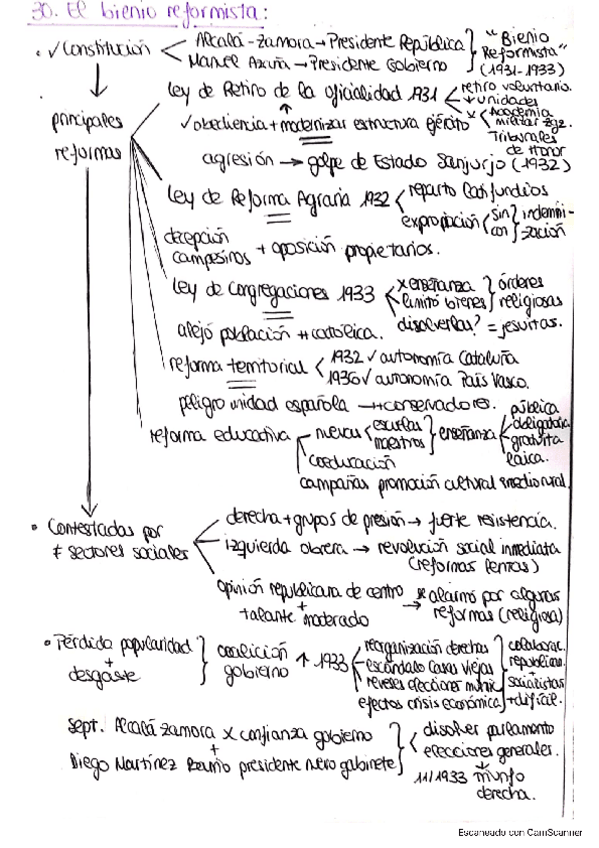 30. El bienio reformista:
• ✓Constitución < Alcalá-Zamora → Presidente República } "Bienio
Manuel Azaña → Presidente Gobierno } Reformista"
(1931-1933)
principales
reformas
Ley de Retiro de la oficialidad 1931 < retiro voluntario.
↓ unidades
✓obediencia + modernizar estructura ejército x < Academia
militar zgz.
Tribunales
de Honor
agresión → golpe de Estado Sanjurjo (1932)
Ley de Reforma Agraria 1932 < reparto latifundios
expropiación < sin } indemni-
con } zación
decepción
campesinos + oposición propietarios.
Ley de Congregaciones 1933 < x enseñanza } órdenes
limitó bienes } religiosas
disolverlas? = jesuitas.
alejó población + católica.
reforma territorial < 1932 ✓ autonomía Cataluña
1936 ✓ autonomía País Vasco.
peligro unidad española → + conservadores.
reforma educativa < nuevas < escuelas
maestros } enseñanza < pública
obligatoria
gratuita
laica.
coeducación
campañas promoción cultural medio rural
• Contestadas por
≠ sectores sociales
derecha + grupos de presión → fuerte resistencia.
izquierda obrera → revolución social inmediata
(reformas lentas)
opinión republicana de centro
+
talante moderado → se alarmó por algunas
reformas (religiosa)
• Pérdida popularidad
+
desgaste } coalición
gobierno ↑ 1933 < reorganización derechas
escándalo Casas Viejas
reveses elecciones munic.
efectos crisis económica } colaborac.
republicano
+
socialistas
+ difícil.
sept. Alcalá-Zamora x confianza gobierno
+
Diego Martínez Barrio presidente nuevo gabinete } < disolver parlamento
elecciones generales.
↓
11/1933 triunfo
derecha.
Escaneado con CamScanner